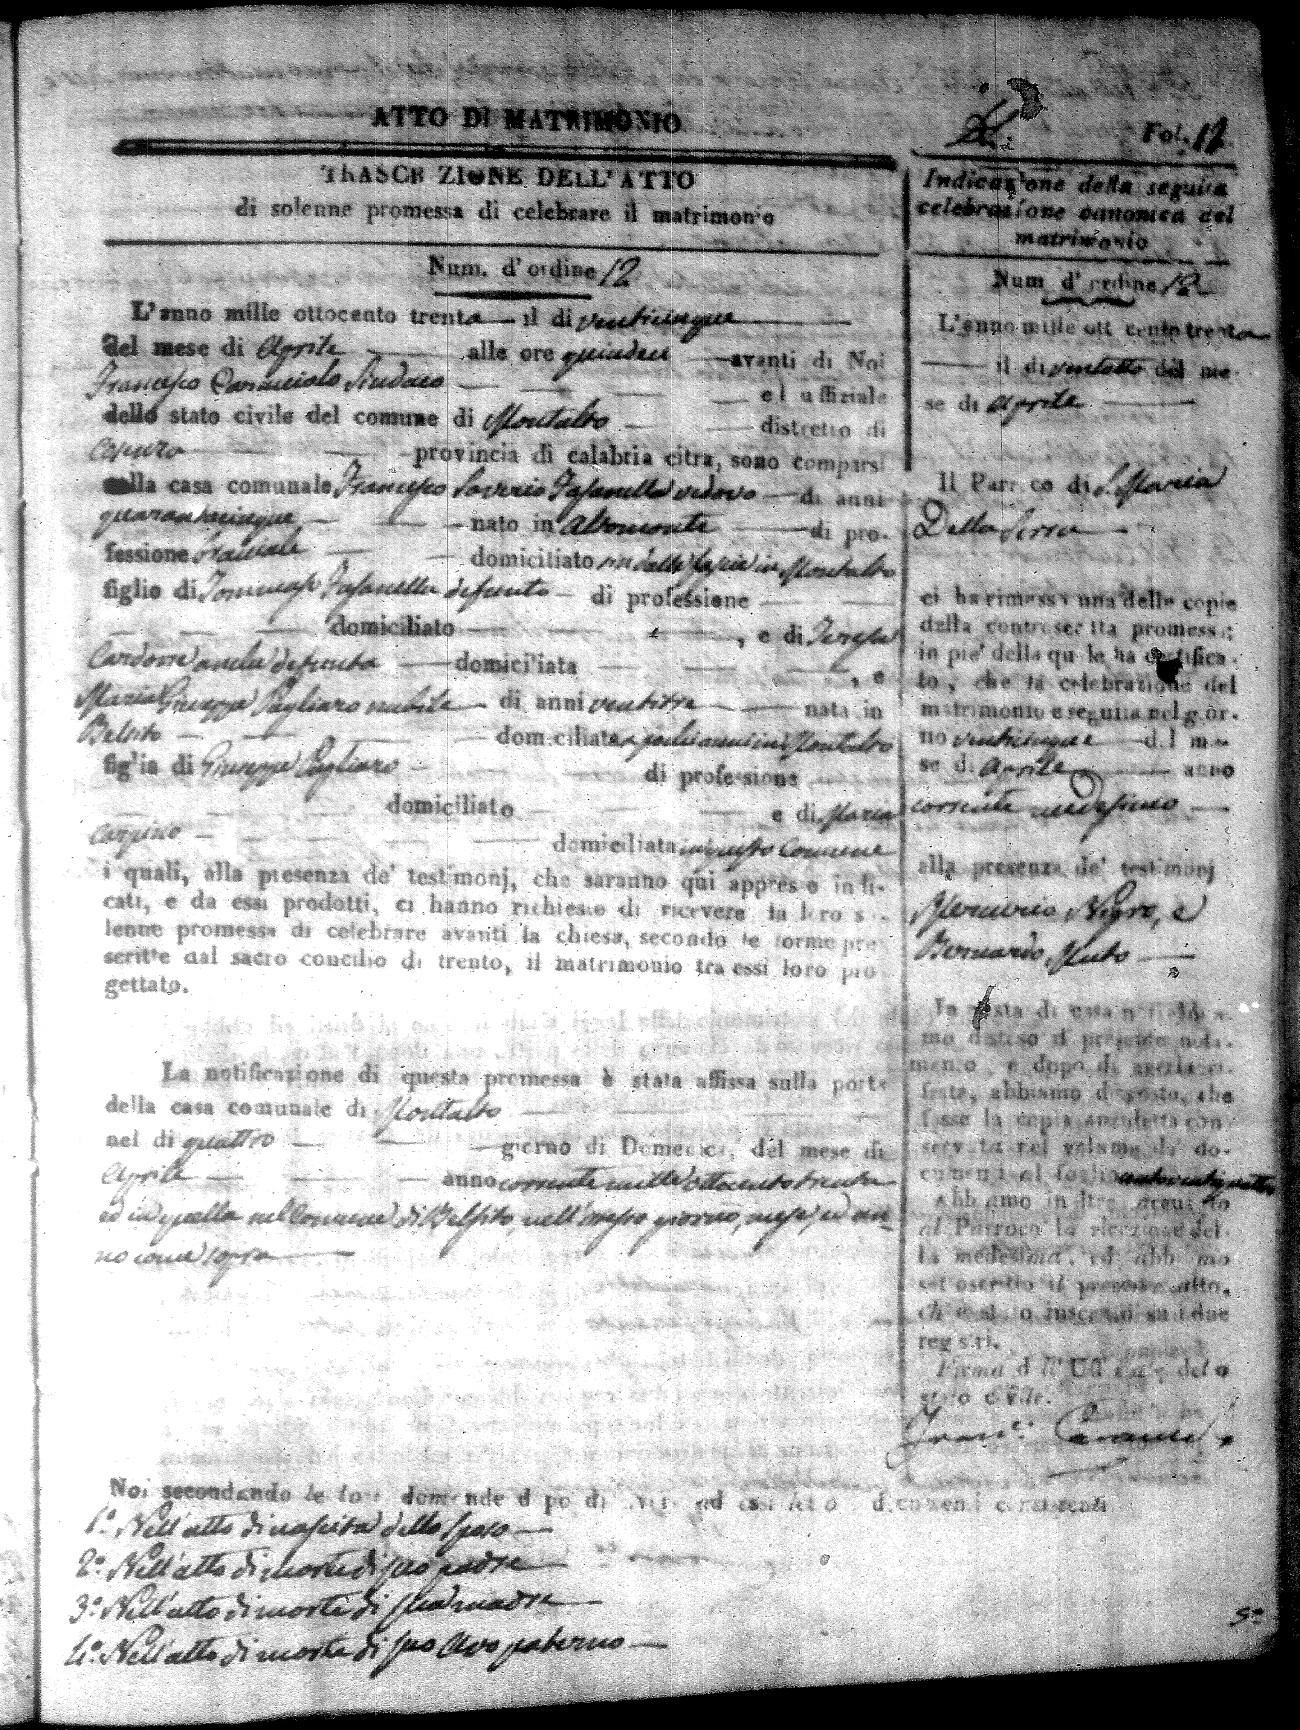 ATTO DI MATRIMONIO
Fol. 12
TRASCRIZIONE DELL'ATTO
di solenne promessa di celebrare il matrimonio
Num. d'ordine 12
L'anno mille ottocento trenta il di venticinque
del mese di Aprile alle ore quindici avanti di Noi
Francesco Caracciolo Sindaco ed uffiziale
dello stato civile del comune di Montalto distretto di
Cosenza provincia di calabria citra, sono comparsi
nella casa comunale Francesco Saverio Fasanella vedovo di anni
quarantacinque nato in Altomonte di pro-
fessione domiciliato in Montalto
figlio di Tommaso Fasanella defunto di professione
domiciliato , e di Teresa
Cardone anche defunta domiciliata , e
Maria Giuseppa Pagliaro nubile di anni ventitre nata in
Belsito domiciliata in Montalto
figlia di Giuseppe Pagliaro di professione
domiciliato e di Maria
Carpino domiciliata in questo Comune
i quali, alla presenza de' testimonj, che saranno qui appresso indi-
cati, e da essi prodotti, ci hanno richiesto di ricevere la loro so-
lenne promessa di celebrare avanti la chiesa, secondo le forme pre
scritte dal sacro concilio di trento, il matrimonio tra essi loro pro
gettato.
La notificazione di questa promessa è stata affissa sulla porta
della casa comunale di Montalto
nel di quattro giorno di Domenica, del mese di
Aprile anno corrente mille ottocento trenta
ed in quella nel Comune di Belsito, nell'istesso giorno, mese, ed an-
no come sopra
Indicazione della seguita
celebrazione canonica del
matrimonio
Num d'ordine 12
L'anno mille ottocento trenta
il di ventotto del me-
se di Aprile
Il Parroco di S. Maria
Della Serra
ci ha rimessa una delle copie
della controscritta promessa;
in piè della quale ha certifica-
to, che la celebrazione del
matrimonio è seguita nel gior-
no venticinque del me-
se di Aprile anno
corrente medesimo
alla presenza de' testimonj
Mercurio Nigro, e
Bernardo Muto
In vista di essa noi abbia-
mo disteso il presente nota-
mento, e dopo di averla ci-
frata, abbiamo disposto, che
fosse la copia anzidetta con
servata nel volume di do-
cumenti al foglio
Abbiamo inoltre accusato
al Parroco la ricezione del-
la medesima, ed abbiamo
sottoscritto il presente atto,
ch'è stato inscritto su i due
registri.
Firma dell'Uffiziale dello
stato civile.
Franc. Caracciolo
Noi secondando le loro domande dopo di aver ad essi letto i documenti consistenti
1.° Nell'atto di nascita dello sposo
2.° Nell'atto di morte di suo padre
3.° Nell'atto di morte di sua madre
4.° Nell'atto di morte di suo Avo paterno
5.°